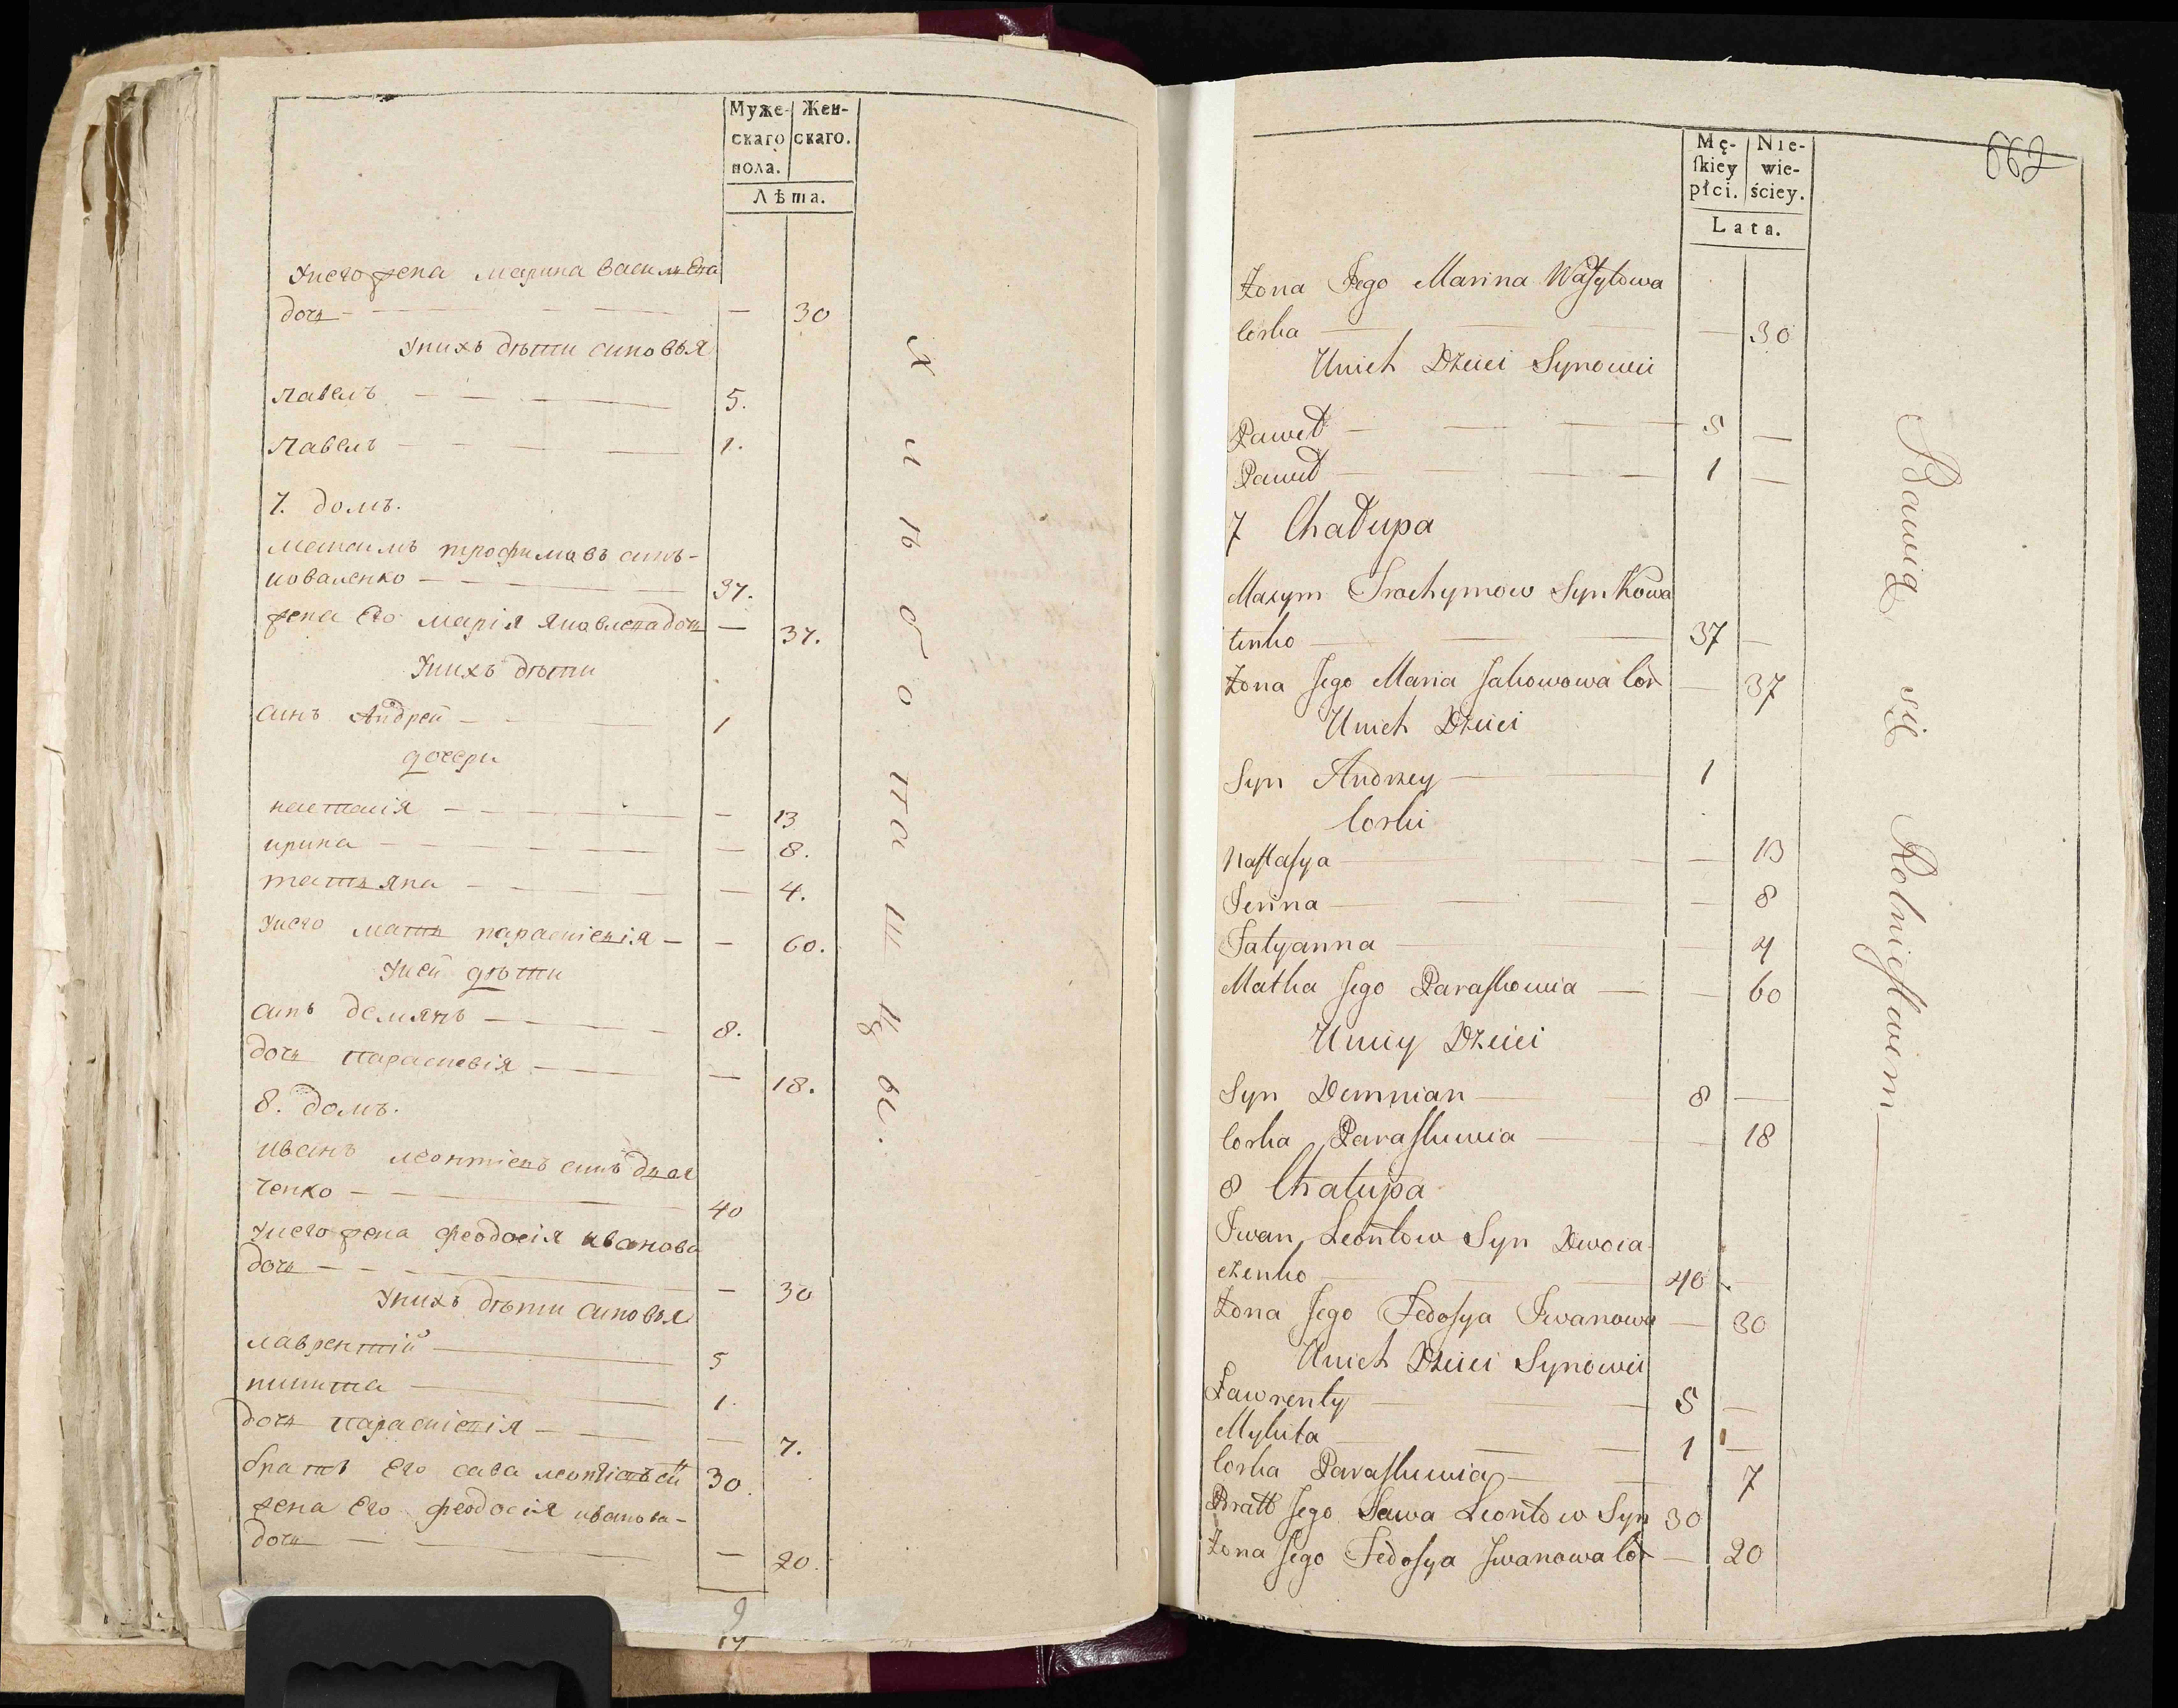 Муже-
скаго
пола.
Жен-
скаго.
Лѣта.
Унего жена марина василиева
дочь 30
Унихъ дѣти синовья
Павелъ 5.
Павелъ 1.
7. домъ.
Максимъ трофимовъ синъ-
коваленко 37.
жена Его марія яковлева дочь 37.
Унихъ дѣти
синъ Андрей 1
дочери
настасія 13
ирина 8.
татьяна 4.
Унего мать параскіевія 60.
Уней дѣти
синъ демянъ 8.
дочь параскевія 18.
8. домъ.
иванъ леонтіевъ синъ
ченко 40
Унего жена феодосія иванова
дочь 30
Унихъ дѣти синовья
лаврентій 5
никита 1.
дочь параскіевія 7.
братъ Его сава 30.
жена Его феодосія иванова-
дочь 20.
хлѣбопашцы.
9
Mę-
ſkiey
płci.
Nie-
wie-
ściey.
Lata.
662
Żona Jego Marina Waſylowa
Corka 30
Unich Dzieci Synowie
Paweł 5
Paweł 1
7 Chałupa
Maxym Trochymow Syn Kowa
lenko 37
Żona Jego Maria Jakowowa Cor 37
Unich Dzieci
Syn Andrzey 1
Corki
Naſtaſya 13
Jerina 8
Tatyanna 4
Matka Jego Paraſkowia 60
Uniey Dzieci
Syn Demnian 8
Corka Paraſkiewia 18
8 Chałupa
Iwan Leontow Syn Dwoia-
czenko 40
Żona Jego Fedoſya Iwanowa 30
Unich Dzieci Synowie
Ławrenty 5
Mykita 1
Corka Paraſkiewia 7
Bratt Jego Sawa Leontow Syn 30
Żona Jego Fedoſya Iwanowa Cor 20
Bawią się Rolnictwem